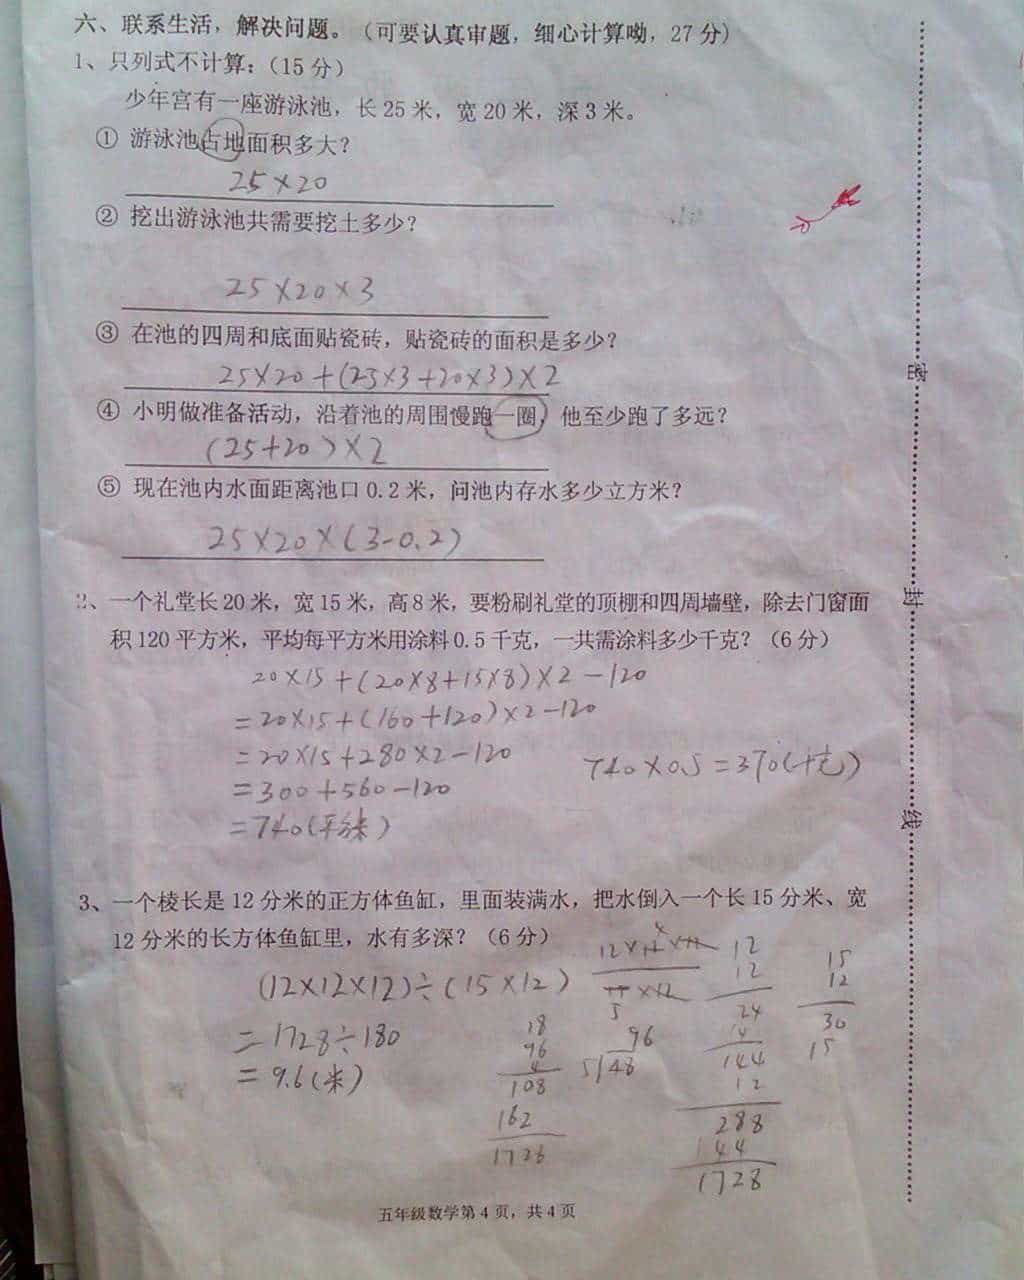 六、联系生活，解决问题。（可要认真审题，细心计算呦，27分）
1、只列式不计算：（15分）
少年宫有一座游泳池，长25米，宽20米，深3米。
① 游泳池占地面积多大？
25×20
② 挖出游泳池共需要挖土多少？
25×20×3
③ 在池的四周和底面贴瓷砖，贴瓷砖的面积是多少？
25×20+(25×3+20×3)×2
④ 小明做准备活动，沿着池的周围慢跑一圈，他至少跑了多远？
(25+20)×2
⑤ 现在池内水面距离池口0.2米，问池内存水多少立方米？
25×20×(3-0.2)
2、一个礼堂长20米，宽15米，高8米，要粉刷礼堂的顶棚和四周墙壁，除去门窗面
积120平方米，平均每平方米用涂料0.5千克，一共需涂料多少千克？（6分）
20×15+(20×8+15×8)×2-120
=20×15+(160+120)×2-120
=20×15+280×2-120
=300+560-120
=740(平方米)
740×0.5=370(千克)
3、一个棱长是12分米的正方体鱼缸，里面装满水，把水倒入一个长15分米、宽
12分米的长方体鱼缸里，水有多深？（6分）
(12×12×12)÷(15×12)
=1728÷180
=9.6(米)
12×12×12
×12
5
4
18
96
4
108
162
1728
96
5)48
12
12
24
144
12
288
144
1728
15
12
30
15
密
封
线
五年级数学第4页，共4页